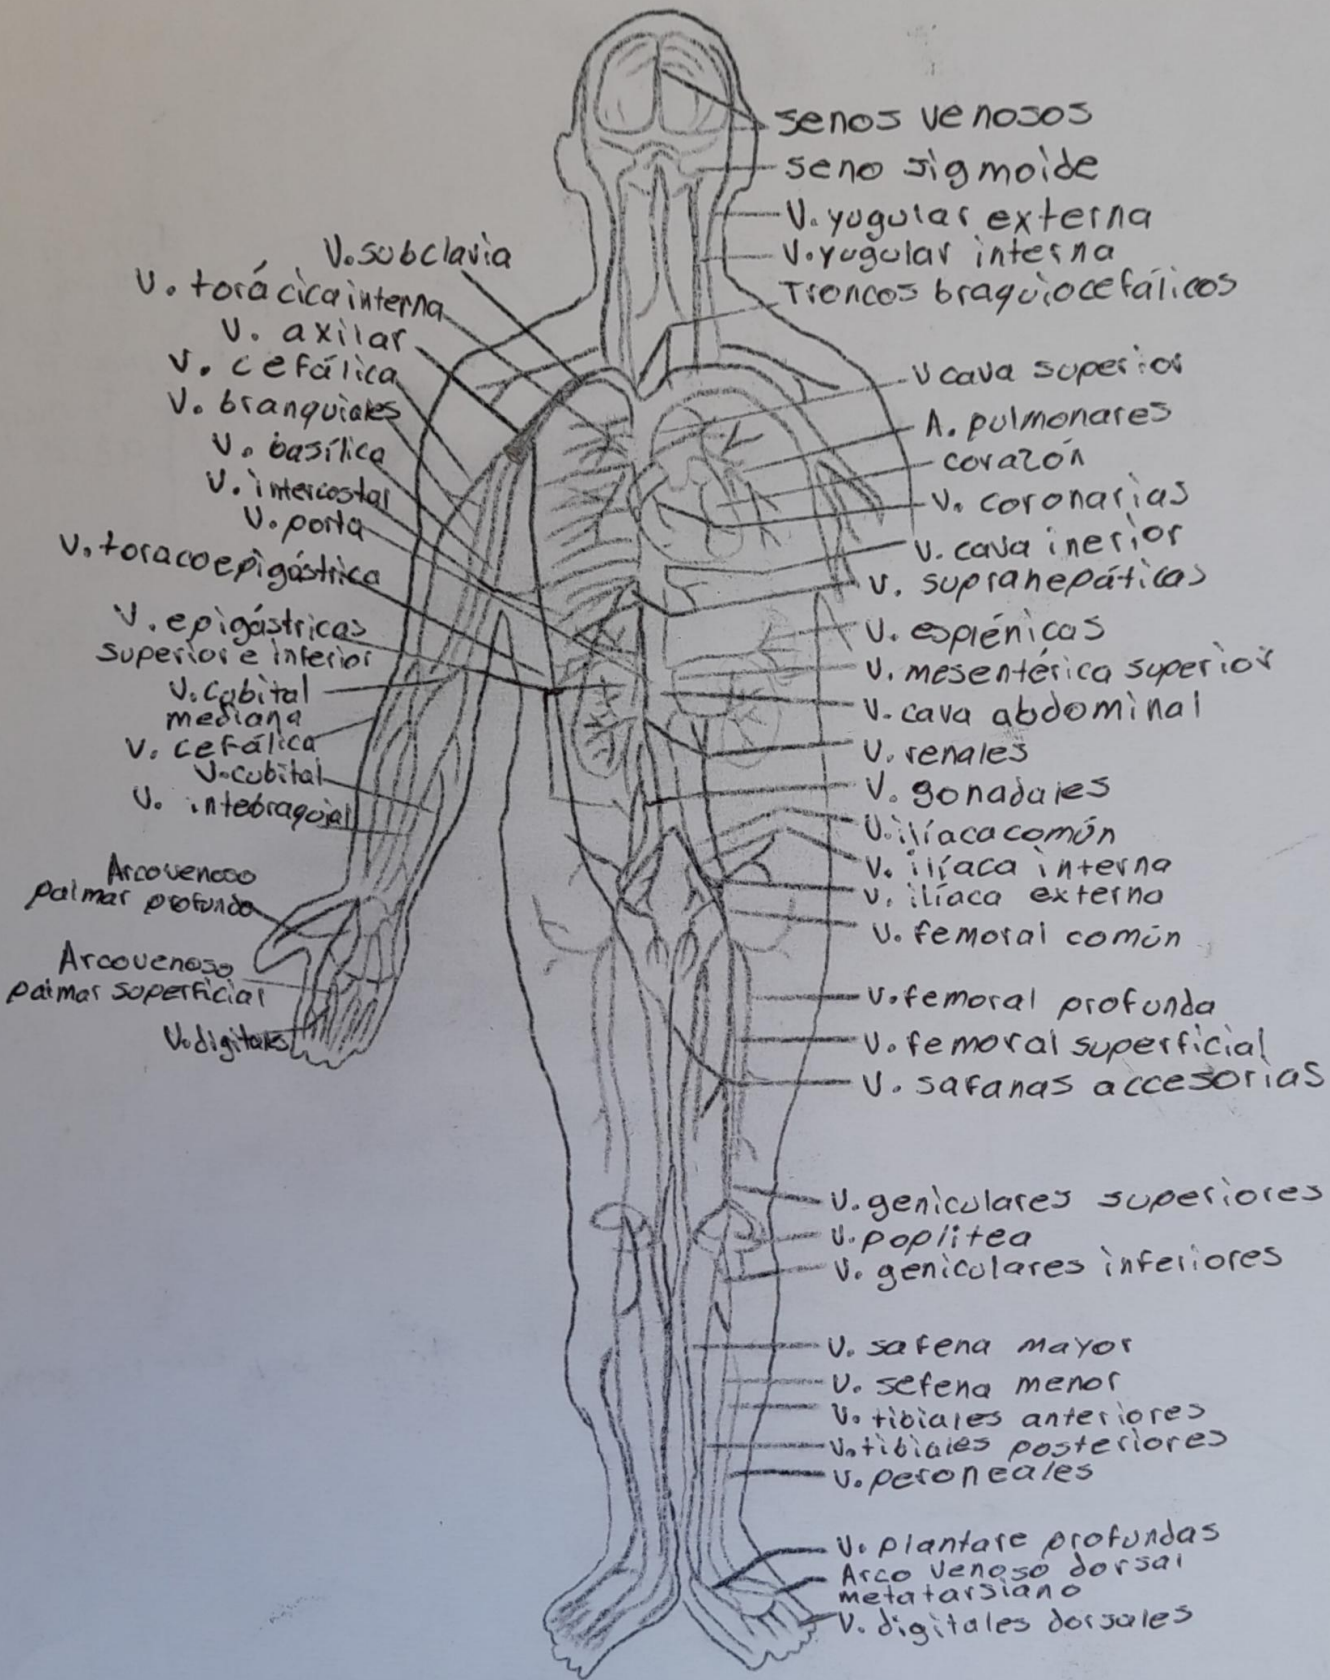 senos venosos
seno sigmoide
V. yugular externa
V. yugular interna
Troncos braquiocefálicos
V cava superior
A. pulmonares
corazón
V. coronarias
V. cava inerior
V. suprahepáticas
V. esplénicas
V. mesentérica superior
V. cava abdominal
V. renales
V. gonadales
V. ilíaca común
V. ilíaca interna
V. ilíaca externa
V. femoral común
V. femoral profunda
V. femoral superficial
V. safanas accesorias
V. geniculares superiores
V. poplitea
V. geniculares inferiores
V. safena mayor
V. sefena menor
V. tibiales anteriores
V. tibiales posteriores
V. peroneales
V. plantare profundas
Arco venoso dorsal
metatarsiano
V. digitales dorsales
V. subclavia
V. torácica interna
V. axilar
V. cefálica
V. branquiales
V. basílica
V. intercostal
V. porta
V. toracoepigástrica
V. epigástricas
superior e inferior
V. cubital
mediana
V. cefálica
V. cubital
V. intebraquial
Arcovenoso
palmar profundo
Arcovenoso
palmar superficial
V. digitales